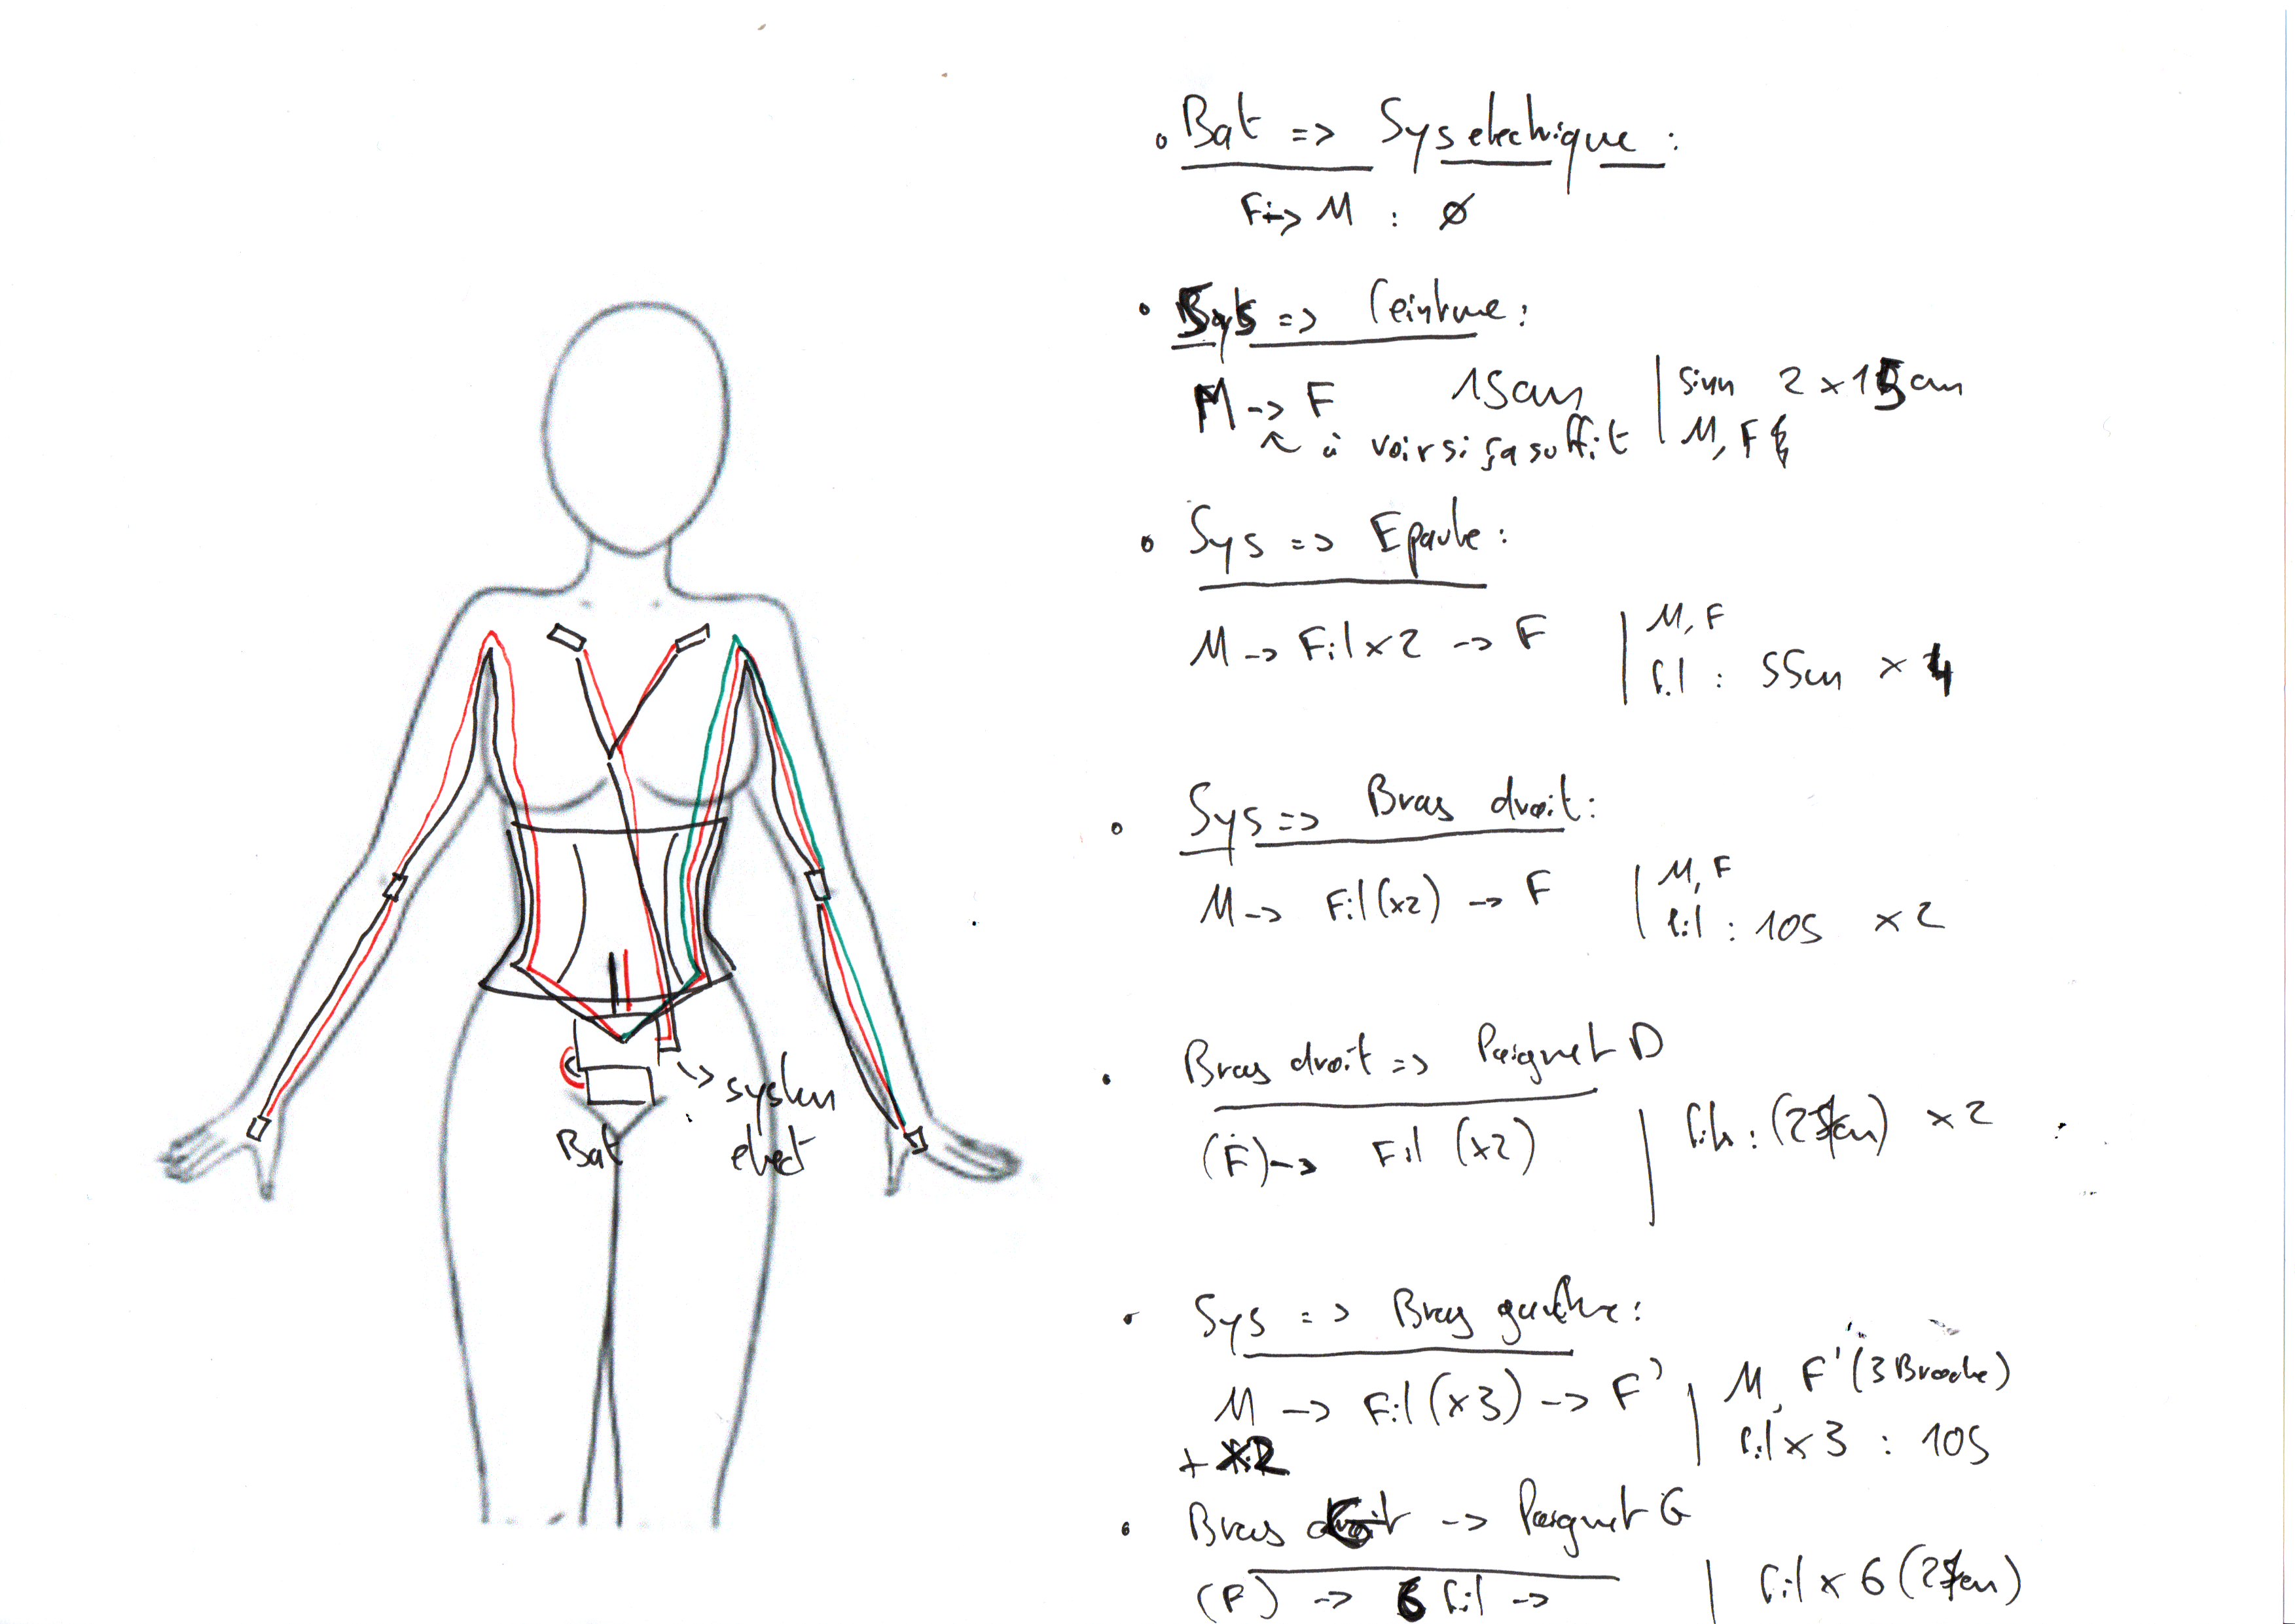 Bat => Sys electrique :
F -> M : ø
Sys => Ceinture :
M -> F 15cm | sinn 2 x 15cm
à voir si ça suffit | M, F
Sys => Epaule :
M -> Fil x 2 -> F | M, F
fil : 55cm x 4
Sys => Bras droit :
M -> Fil (x2) -> F | M, F
fil : 105 x 2
Bras droit => Poignet D
(F) -> Fil (x2) | fils : (25cm) x 2
Sys => Bras gauche :
M -> Fil (x3) -> F' | M, F' (3 Broche)
fil x 3 : 105
+ x2
Bras G -> Poignet G
(F) -> 6 fil -> | fil x 6 (25cm)
Bat
system
elect